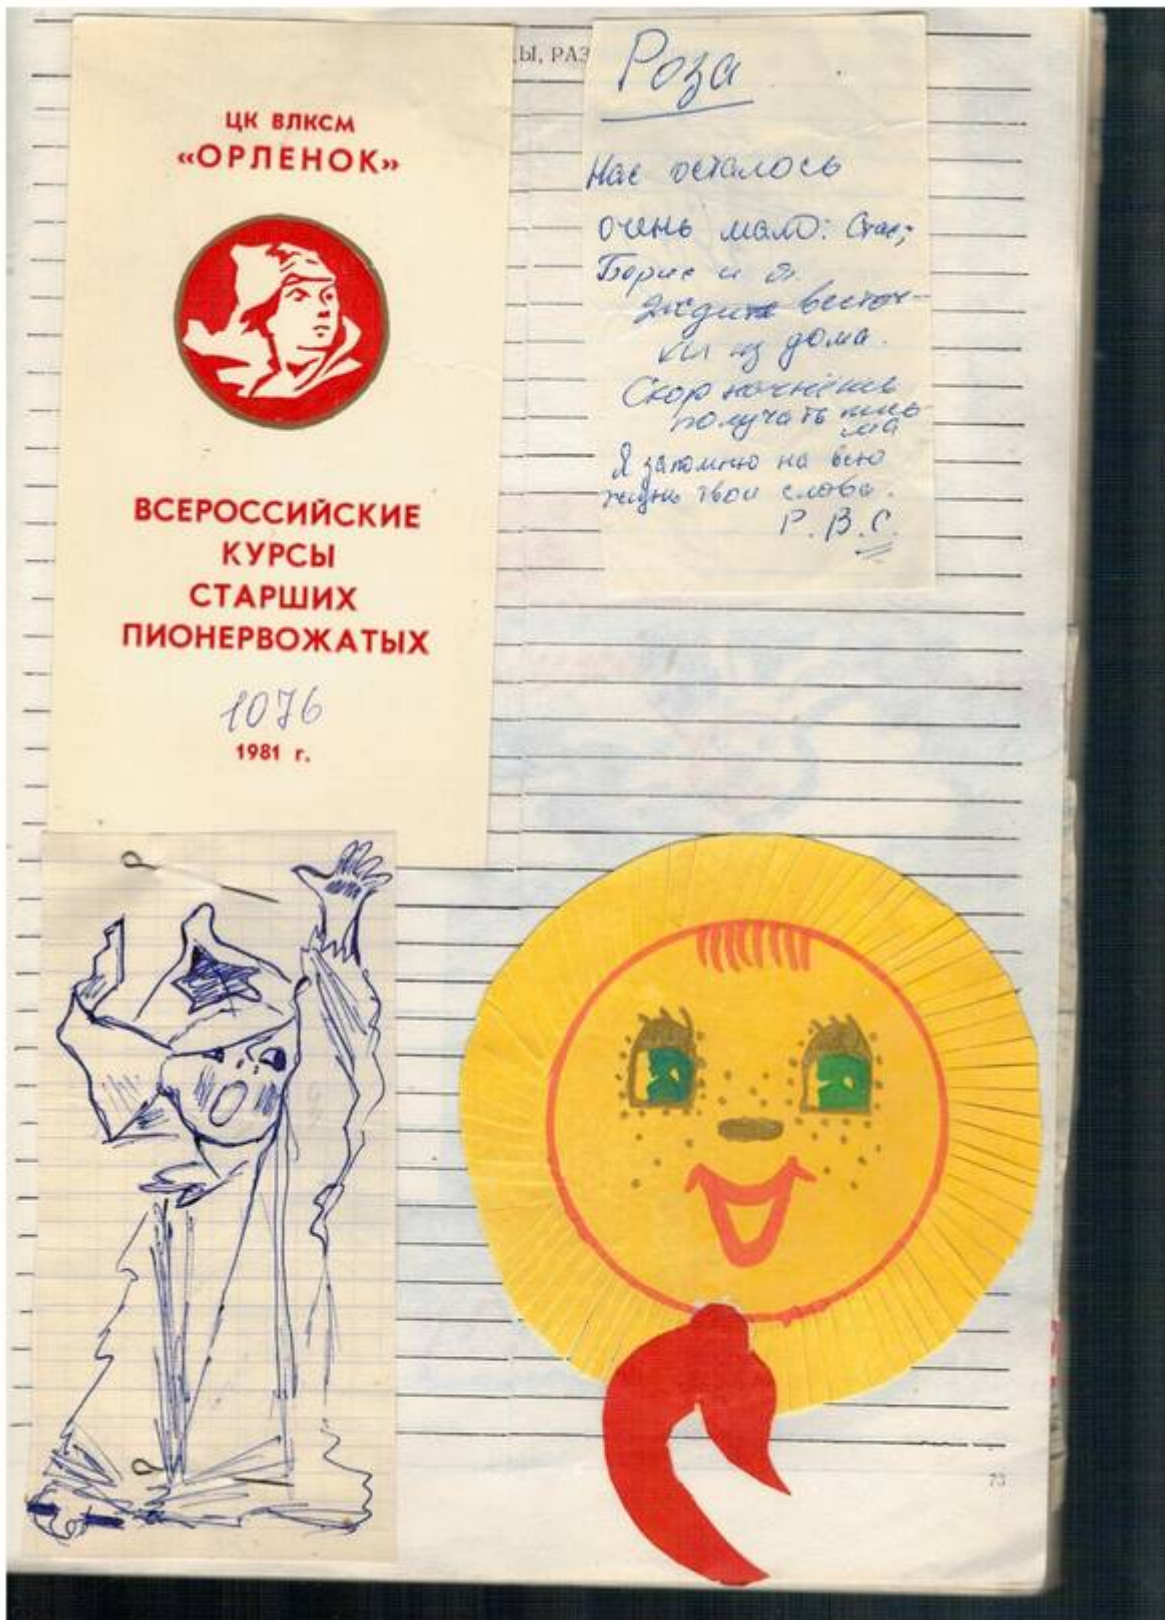 ЦК ВЛКСМ
«ОРЛЕНОК»
ВСЕРОССИЙСКИЕ
КУРСЫ
СТАРШИХ
ПИОНЕРВОЖАТЫХ
1076
1981 г.
Ы, РАЗ
Роза
Нас осталось
очень мало: Стас,
Борис и я.
Ждите весточ-
ки из дома.
Скоро начнёшь
получать пись-
ма
Я запомню на всю
жизнь твои слова.
Р.В.С.
73